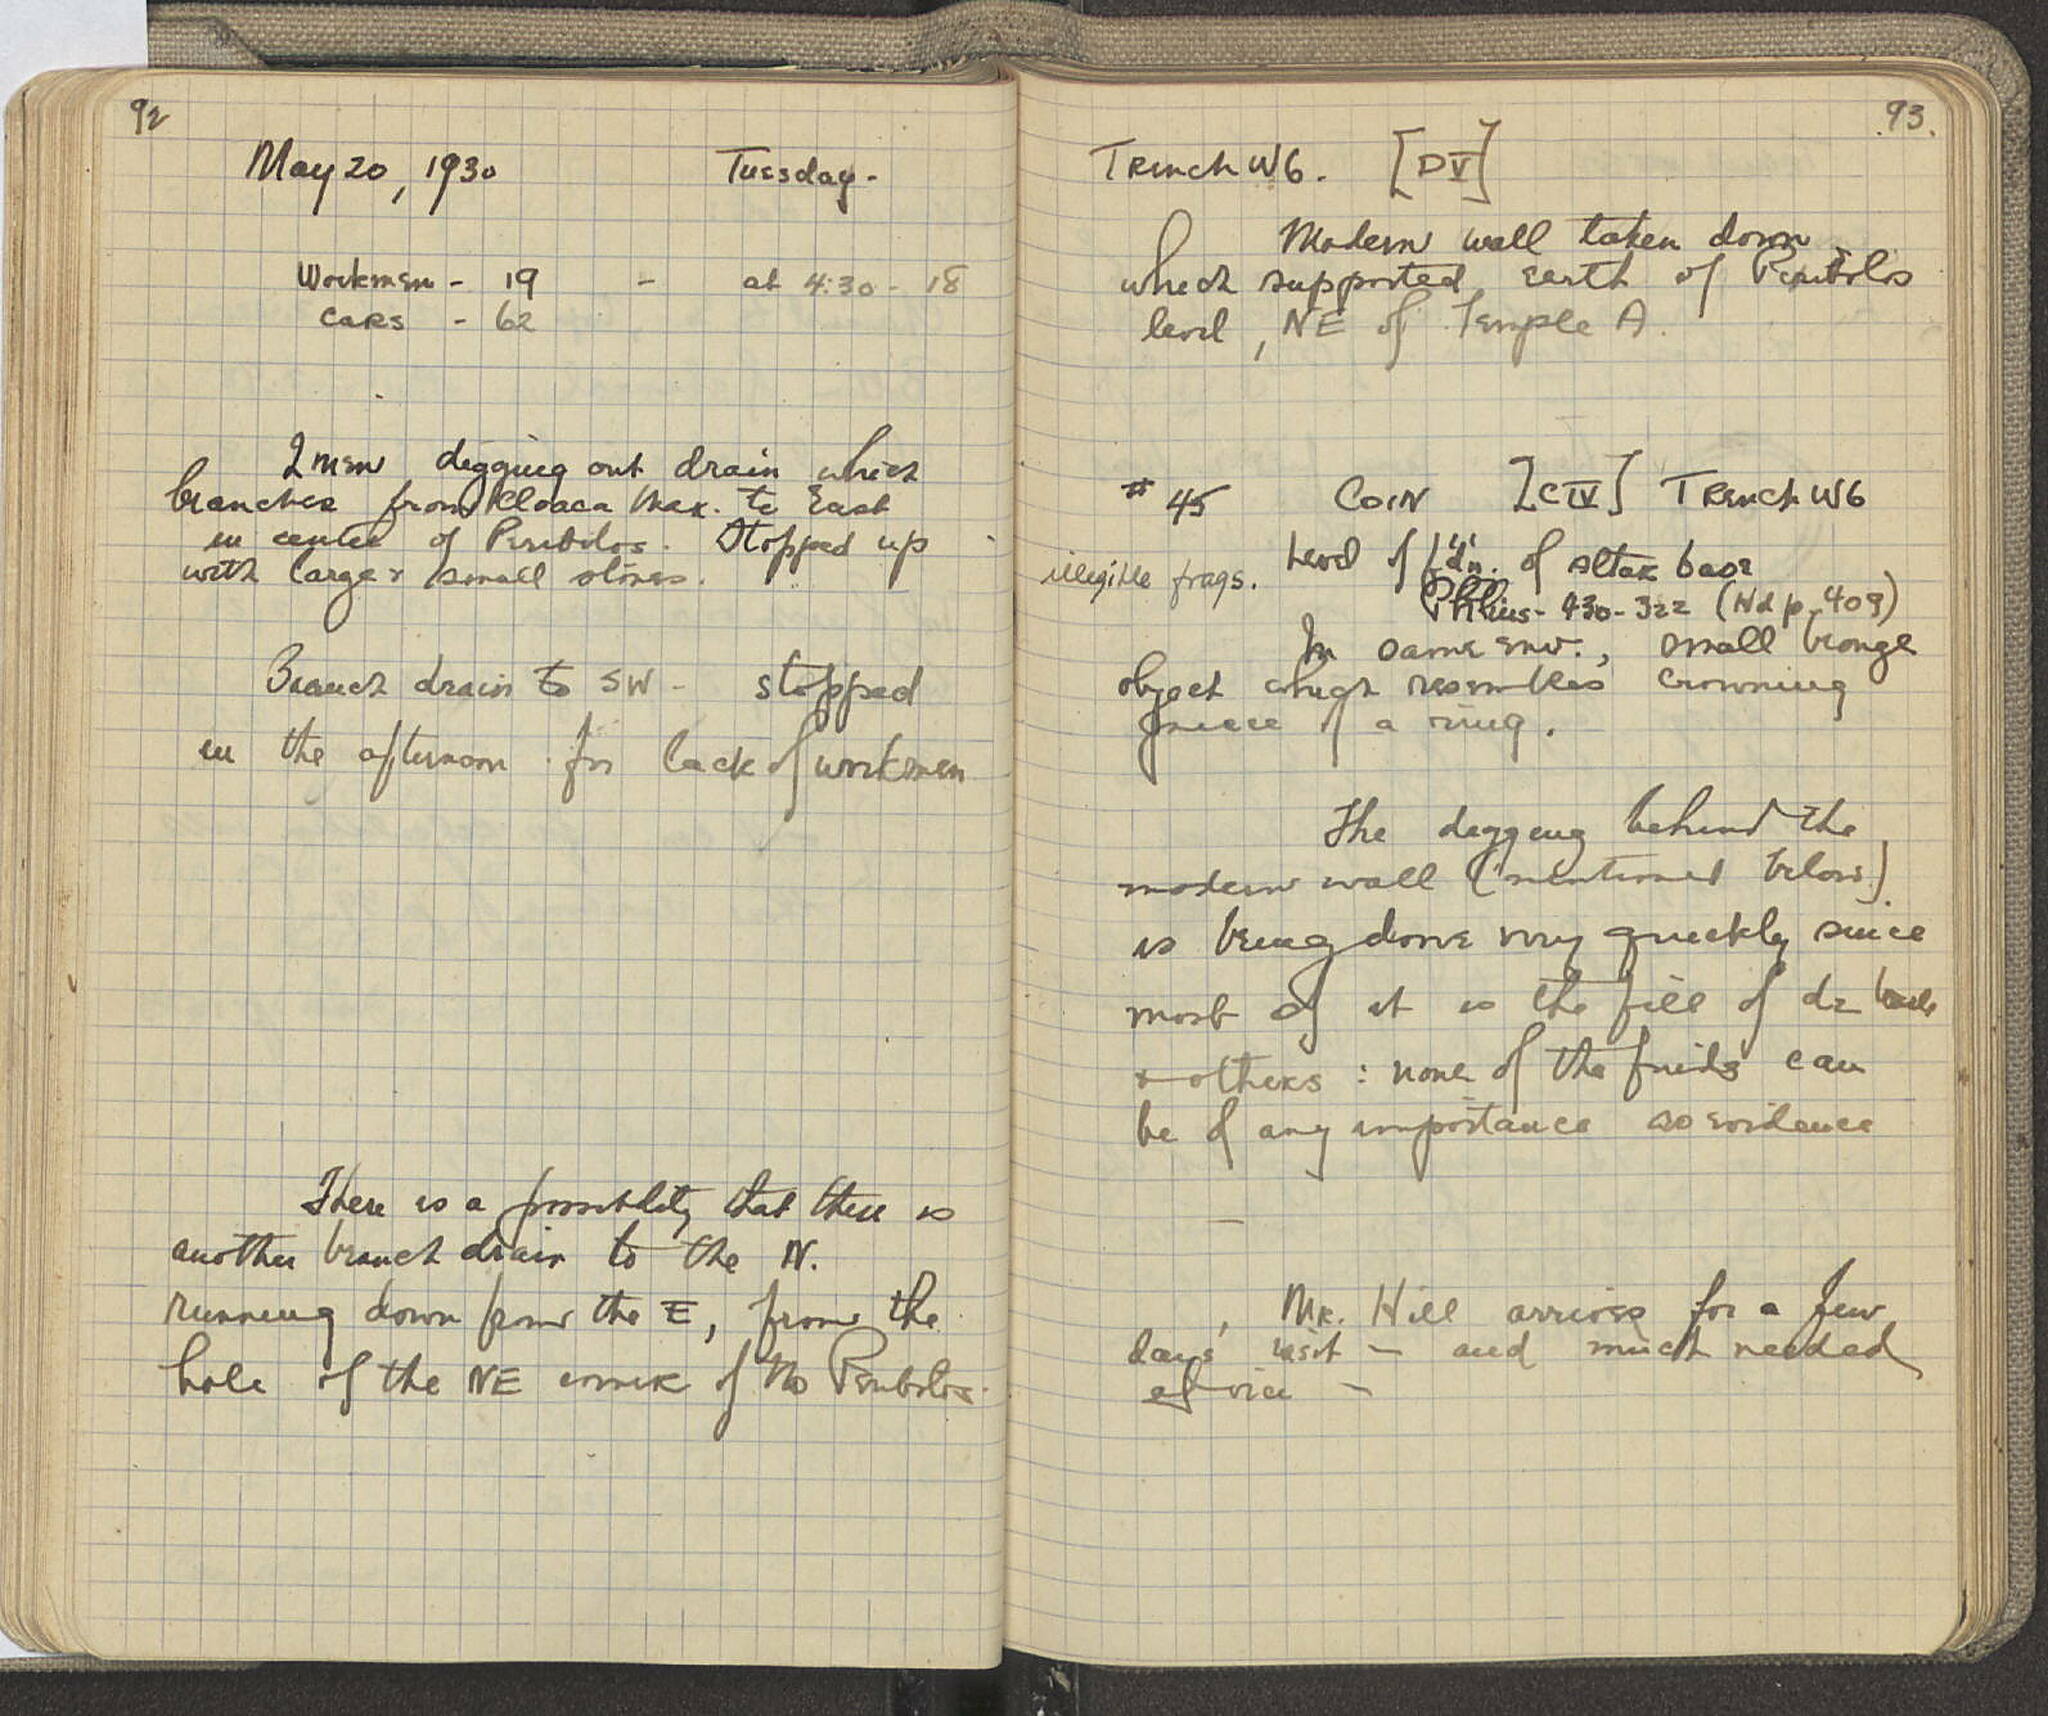 92
May 20, 1930 Tuesday -
Workmen - 19 - at 4:30 - 18
Cars - 62
2 men digging out drain which
branches from Kloaca Max. to East
in center of Peribolos. Stopped up
with large & small stones.
Branch drain to SW - stopped
in the afternoon for lack of workmen
There is a possibility that there is
another branch drain to the N.
running down from the E, from the
hole of the NE corner of the Peribolos.
93.
Trench W6. [DV]
Modern wall taken down
which supported earth of Peribolos
level, NE of Temple A.
# 45 Coin [CIV] Trench W6
illegible frags. Level of f'd'n. of altar base
Phlius - 430-322 (Hd p. 409)
In same env., small bronze
object which resembles crowning
piece of a ring.
The digging behind the
modern wall (mentioned below)
is being done very quickly since
most of it is the fill of de
& others : none of the finds can
be of any importance as evidence
Mr. Hill arrives for a few
days' visit - and much needed
advice -